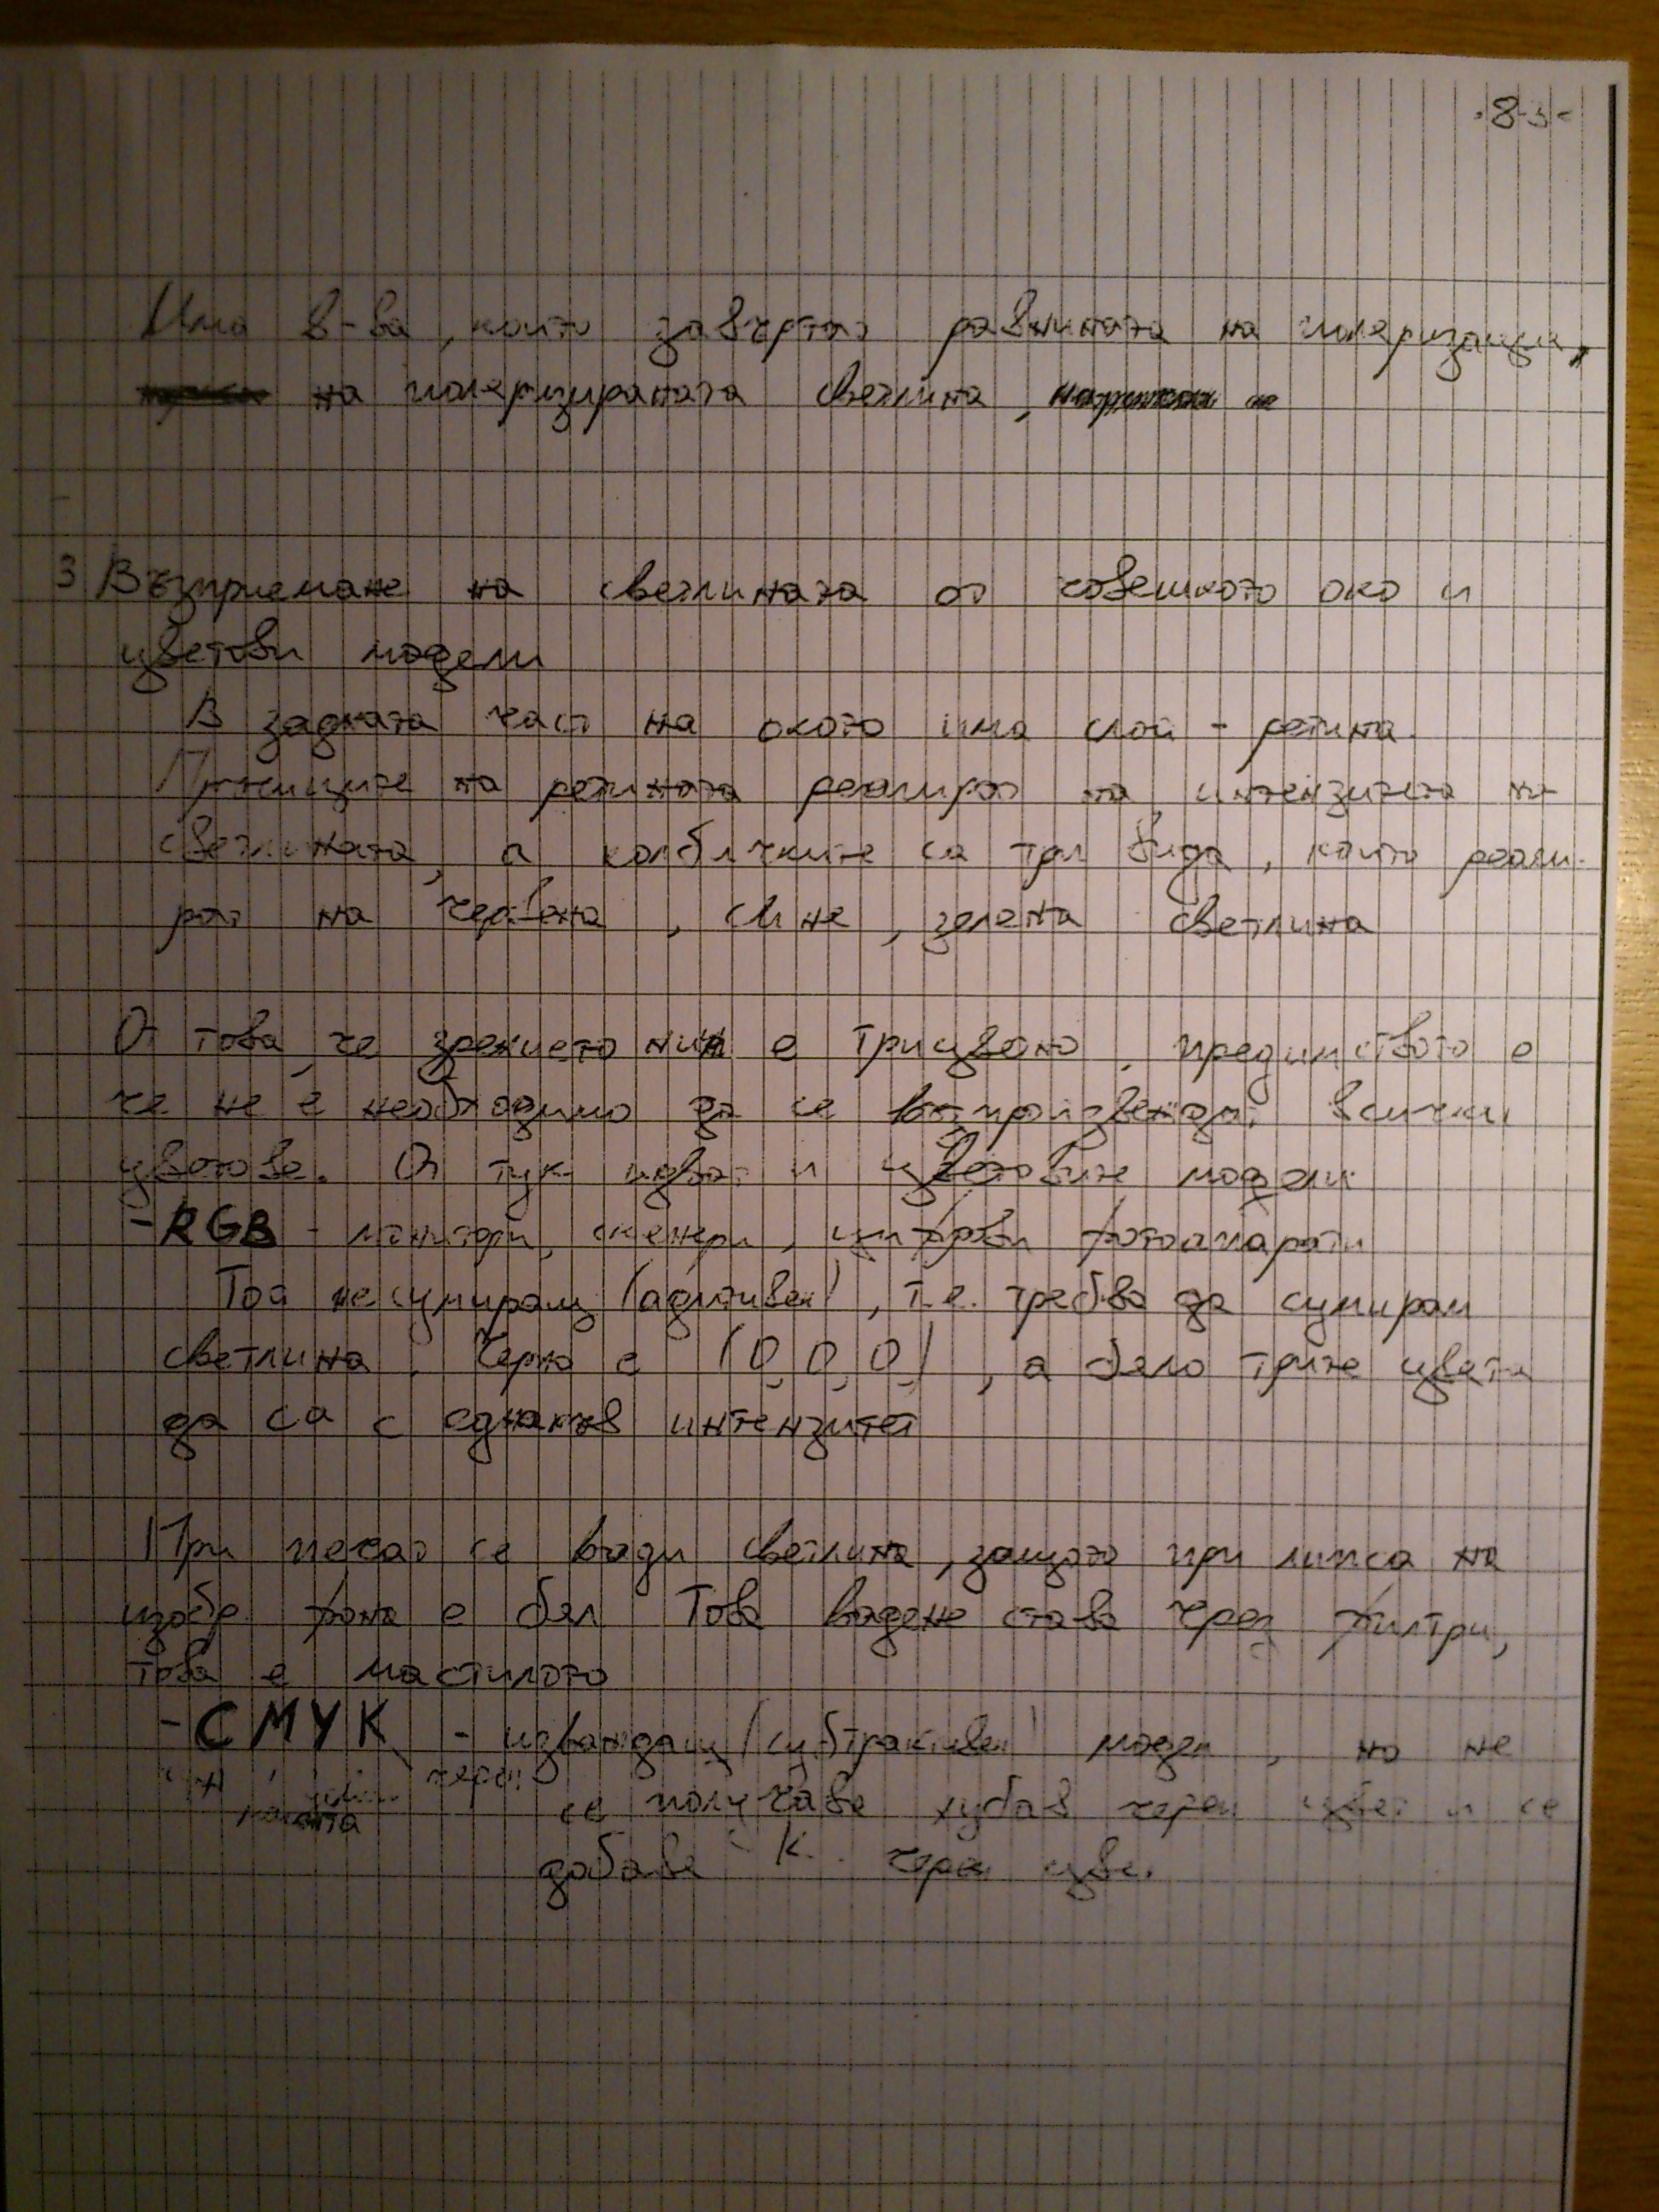 Има в-ва, които завъртат равнината на поляризация,
на поляризираната светлина,
3 Възприемане на светлината от човешкото око и
цветови модели
В задната част на окото има слой - ретина.
на ретината реагират на интензитета на
светлината, а колбичките са три вида, които реаги-
рат на червена, синя, зелена светлина
От това, че зрението ни е трицветно, предимството е
че не е необходимо да се възпроизвеждат всички
цветове. От тук идват и цветовите модели
- RGB - монитори, скенери, цифрови фотоапарати
Той е сумиращ (адитивен), т.е. трябва да сумирам
светлина. Черно е (0, 0, 0), а бяло трите цвята
да са с еднакъв интензитет
При печат се вади светлина, защото при липса на
изобр. фона е бял. Това вадене става чрез филтри,
това е мастилото
- CMYK - изваждащ (субтрактивен) модел, но не
черен
магента
се получава хубав черен цвят и се
добавя K черен цвят